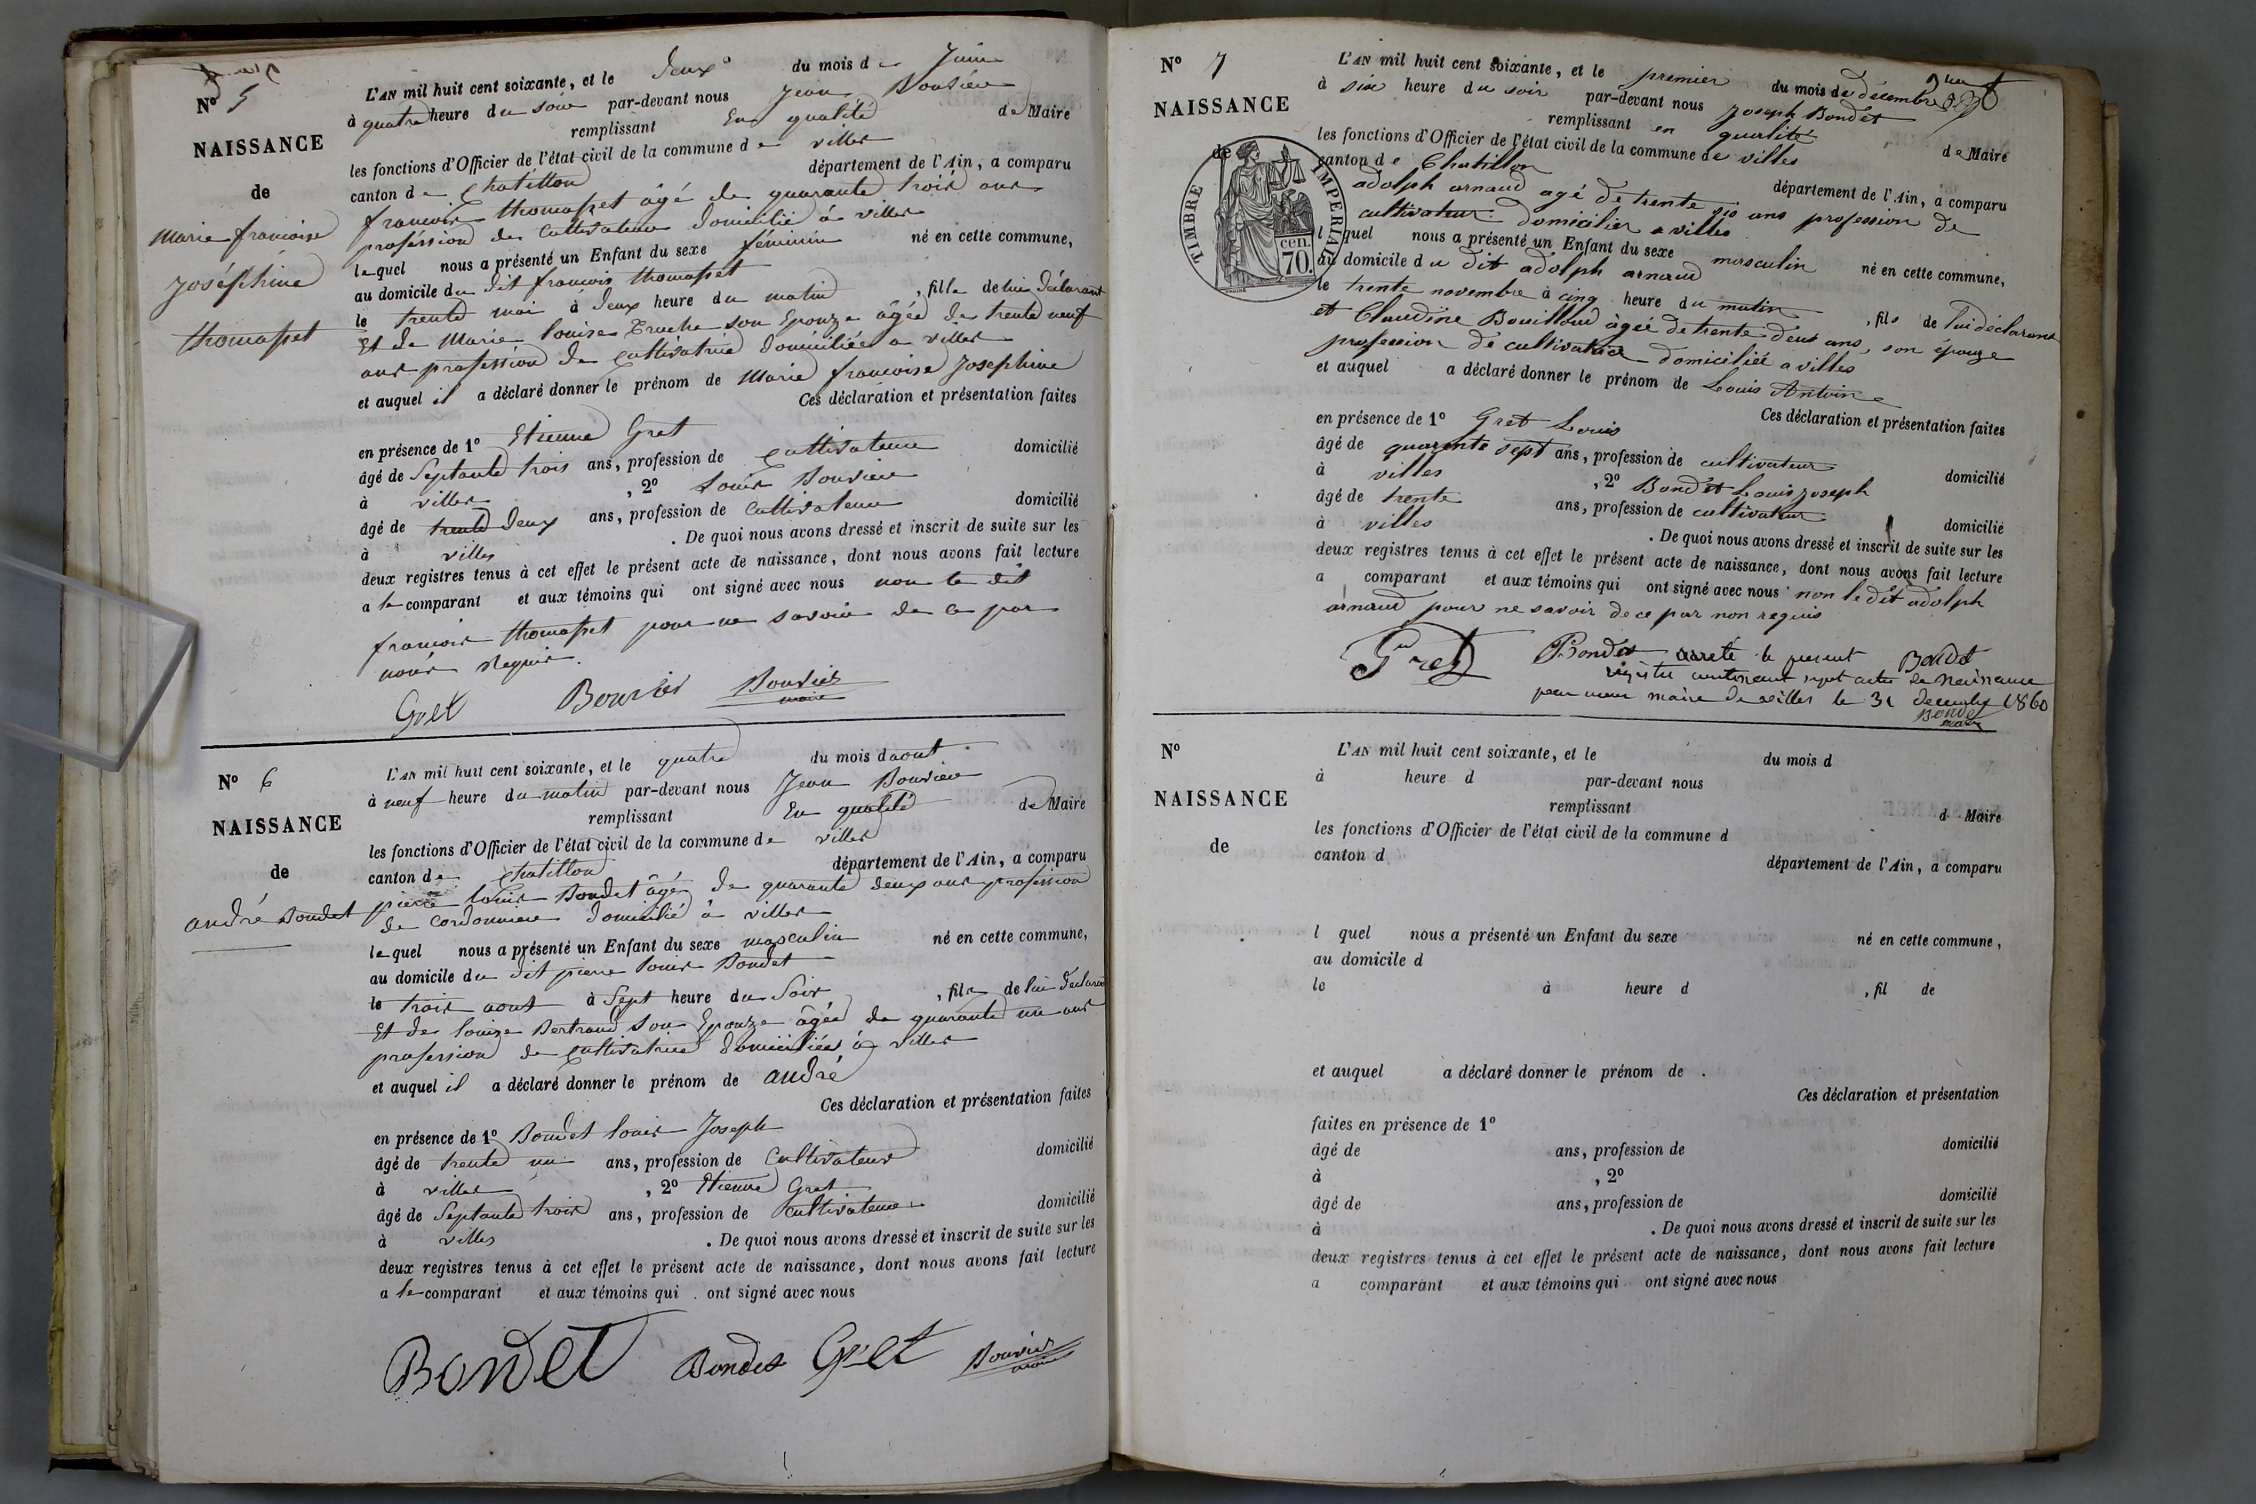 N° 5
NAISSANCE
de
Marie francoise
Joséphine
thomasset
L'AN mil huit cent soixante, et le deux du mois de Juin
à quatre heure du soir par-devant nous Jean Bouvier
remplissant En qualité de Maire
les fonctions d'Officier de l'état civil de la commune de villes
canton de Chatillon département de l'Ain, a comparu
francois thomasset âgé de quarante trois ans
proféssion de Cultivateur domicilié à villes
lequel nous a présenté un Enfant du sexe féminin né en cette commune,
au domicile du dit francois thomasset
le trente mai à deux heure du matin, fille de lui déclarant
Et de Marie louise Truche son Epouze âgée de trente neuf
ans profession de Cultivatrice domiciliée a villes
et auquel il a déclaré donner le prénom de Marie francoise Josephine
Ces déclaration et présentation faites
en présence de 1° Etienne Gret
âgé de Septante trois ans, profession de Cultivateur domicilié
à villes, 2° Louis Bouvier
âgé de trente deux ans, profession de Cultivateur domicilié
à villes. De quoi nous avons dressé et inscrit de suite sur les
deux registres tenus à cet effet le présent acte de naissance, dont nous avons fait lecture
a le comparant et aux témoins qui ont signé avec nous non le dit
francois thomasset pour ne savoir de ce par
nous Requis.
Gret Bouvier Bouvier
maire
N° 6
NAISSANCE
de
andré Bondet
L'AN mil huit cent soixante, et le quatre du mois d'aout
à neuf heure du matin par-devant nous Jean Bouvier
remplissant En qualité de Maire
les fonctions d'Officier de l'état civil de la commune de villes
canton de Chatillon département de l'Ain, a comparu
pierre louis Bondet âgé de quarante deux ans profession
de cordonnier domicilié à villes
lequel nous a présenté un Enfant du sexe masculin né en cette commune,
au domicile du dit pierre louis Bondet
le trois aout à Sept heure du Soir, fils de lui déclarant
Et de louize Bertrand son Epouze âgée de quarante un ans
profession de Cultivatrice domiciliée à villes
et auquel il a déclaré donner le prénom de andré
Ces déclaration et présentation faites
en présence de 1° Bondet louis Joseph
âgé de trente un ans, profession de Cultivateur domicilié
à villes, 2° Etienne Gret
âgé de Septante trois ans, profession de Cultivateur domicilié
à villes. De quoi nous avons dressé et inscrit de suite sur les
deux registres tenus à cet effet le présent acte de naissance, dont nous avons fait lecture
a le comparant et aux témoins qui ont signé avec nous
Bondet Bondet Gret Bouvier
maire
N° 7
NAISSANCE
de
TIMBRE IMPERIAL
cen.
70.
L'AN mil huit cent soixante, et le premier du mois de décembre
à six heure du soir par-devant nous Joseph Bondet
remplissant en qualité de Maire
les fonctions d'Officier de l'état civil de la commune de villes
canton de Chatillon département de l'Ain, a comparu
adolph arnaud agé de trente six ans profession de
cultivateur domicilier a villes
l quel nous a présenté un Enfant du sexe masculin né en cette commune,
au domicile du dit adolph arnaud
le trente novembre à cinq heure du matin, fils de lui déclarant
et Claudine Bouilloud âgée de trente deux ans, son épouze
profession de cultivatrice domiciliée a villes
et auquel a déclaré donner le prénom de Louis Antoine
Ces déclaration et présentation faites
en présence de 1° Gret Louis
âgé de quarente sept ans, profession de cultivateur domicilié
à villes, 2° Bondet Louis joseph
âgé de trente ans, profession de cultivateur domicilié
à villes. De quoi nous avons dressé et inscrit de suite sur les
deux registres tenus à cet effet le présent acte de naissance, dont nous avons fait lecture
a comparant et aux témoins qui ont signé avec nous non le dit adolph
arnaud pour ne savoir de ce par non requis
Gret Bondet arreté le present Bondet
registre contenant sept actes de Naissance
par nous maire de villes le 31 decembre 1860
Bondet
maire
N°
NAISSANCE
de
L'AN mil huit cent soixante, et le du mois d
à heure d par-devant nous
remplissant d Maire
les fonctions d'Officier de l'état civil de la commune d
canton d département de l'Ain, a comparu
l quel nous a présenté un Enfant du sexe né en cette commune,
au domicile d
le à heure d, fil de
et auquel a déclaré donner le prénom de .
Ces déclaration et présentation
faites en présence de 1°
âgé de ans, profession de domicilié
à , 2°
âgé de ans, profession de domicilié
à . De quoi nous avons dressé et inscrit de suite sur les
deux registres tenus à cet effet le présent acte de naissance, dont nous avons fait lecture
a comparant et aux témoins qui ont signé avec nous